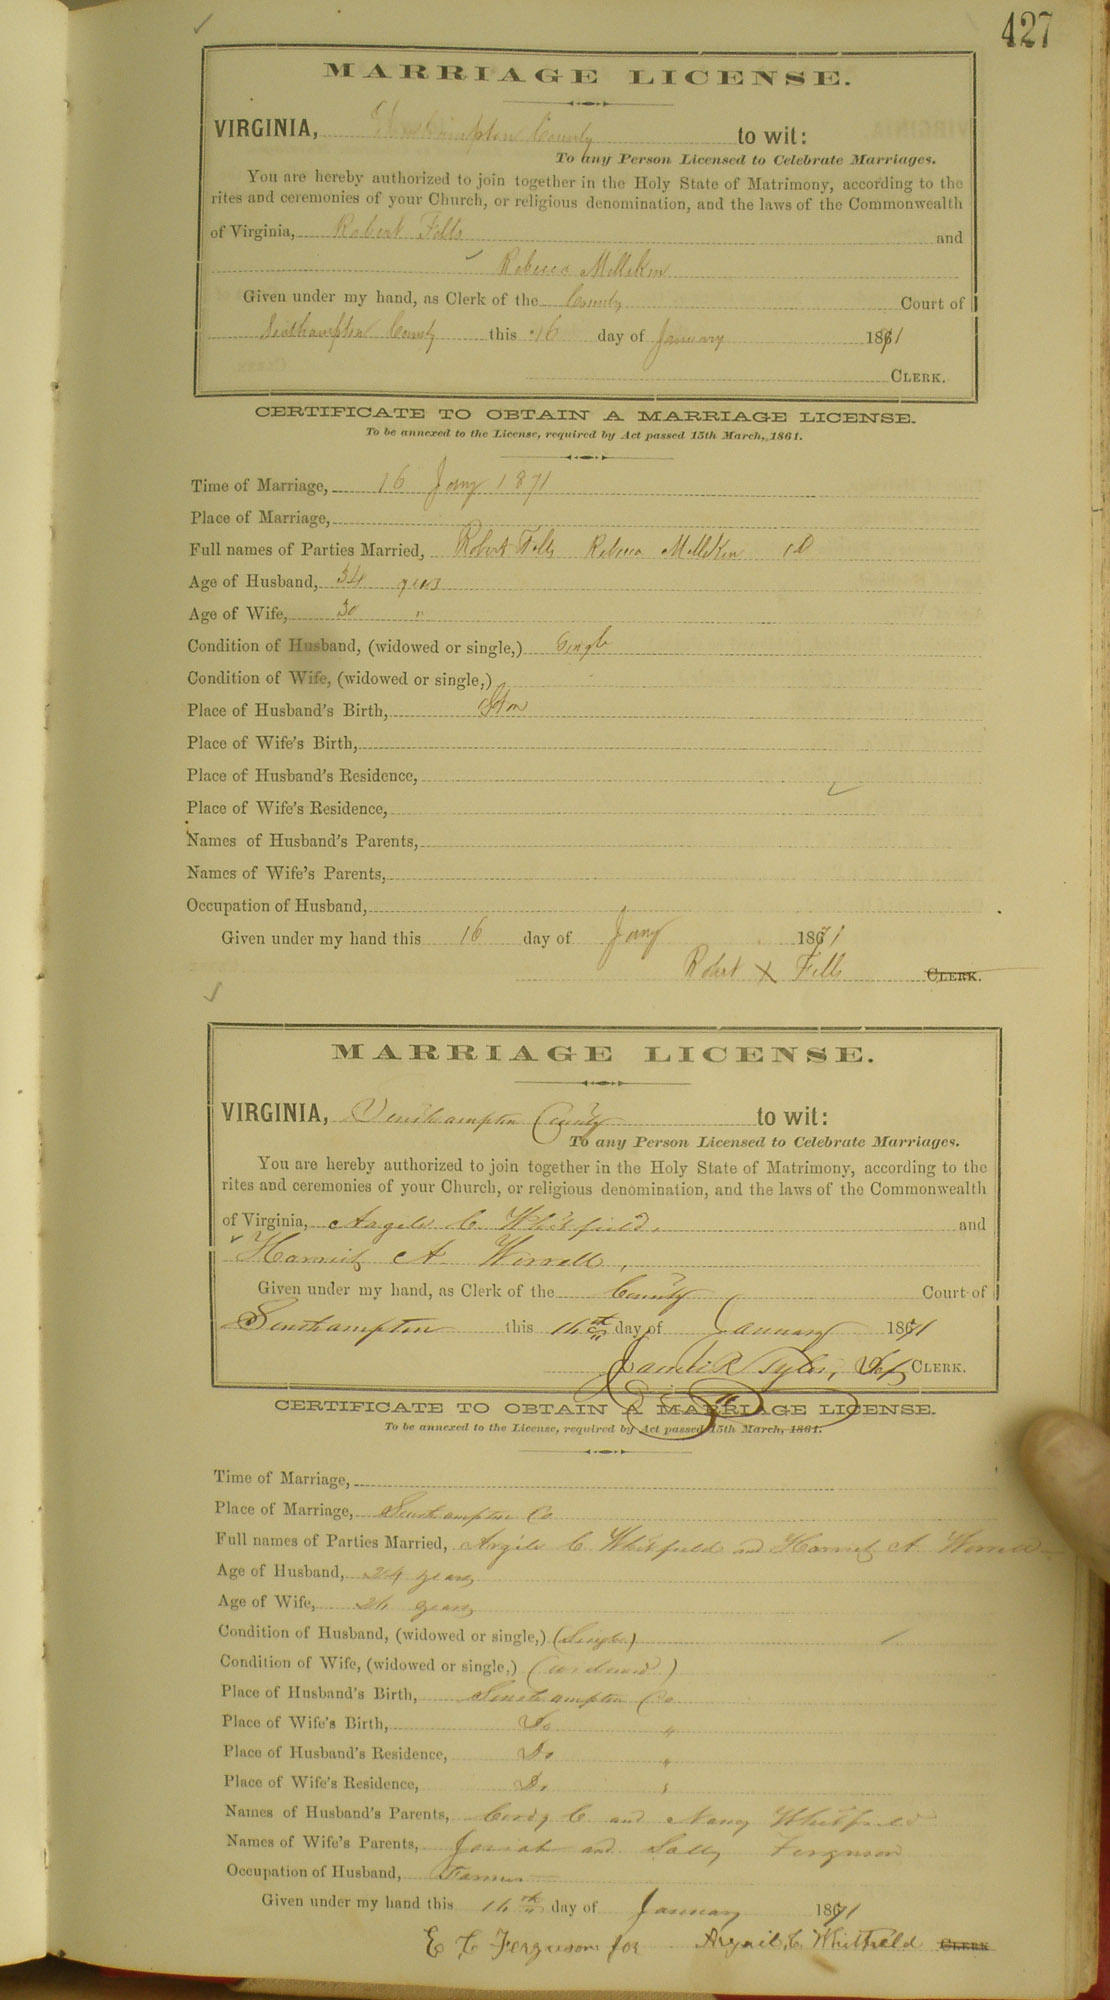 427
MARRIAGE LICENSE.
VIRGINIA, Southampton County to wit:
To any Person Licensed to Celebrate Marriages.
You are hereby authorized to join together in the Holy State of Matrimony, according to the
rites and ceremonies of your Church, or religious denomination, and the laws of the Commonwealth
of Virginia, Robert Fells and
Rebecca Milliken
Given under my hand, as Clerk of the County Court of
Southampton County this 16 day of January 1871
CLERK.
CERTIFICATE TO OBTAIN A MARRIAGE LICENSE.
To be annexed to the License, required by Act passed 15th March, 1861.
Time of Marriage, 16 Jany 1871
Place of Marriage,
Full names of Parties Married, Robert Fells Rebecca Milliken
Age of Husband, 34 years
Age of Wife, 30 "
Condition of Husband, (widowed or single,) Single
Condition of Wife, (widowed or single,)
Place of Husband's Birth,
Place of Wife's Birth,
Place of Husband's Residence,
Place of Wife's Residence,
Names of Husband's Parents,
Names of Wife's Parents,
Occupation of Husband,
Given under my hand this 16 day of Jany 1871
Robert X Fells CLERK.
MARRIAGE LICENSE.
VIRGINIA, Southampton County to wit:
To any Person Licensed to Celebrate Marriages.
You are hereby authorized to join together in the Holy State of Matrimony, according to the
rites and ceremonies of your Church, or religious denomination, and the laws of the Commonwealth
of Virginia, Argile C. Whitfield, and
Harriet A. Worrell,
Given under my hand, as Clerk of the County Court of
Southampton this 16th day of January 1871
James R Tyler, CLERK.
CERTIFICATE TO OBTAIN A MARRIAGE LICENSE.
To be annexed to the License, required by Act passed 15th March, 1861.
Time of Marriage,
Place of Marriage, Southampton Co
Full names of Parties Married, Argile C. Whitfield and Harriet A. Worrell
Age of Husband, 24 years
Age of Wife, 26 years
Condition of Husband, (widowed or single,) (Single)
Condition of Wife, (widowed or single,) (widowed)
Place of Husband's Birth, Southampton Co
Place of Wife's Birth, Do "
Place of Husband's Residence, Do "
Place of Wife's Residence, Do "
Names of Husband's Parents, C. and Nancy Whitfield
Names of Wife's Parents, Josiah and Sally Ferguson
Occupation of Husband, Farmer
Given under my hand this 16th day of January 1871
E C Ferguson for Argail, C. Whitfield CLERK